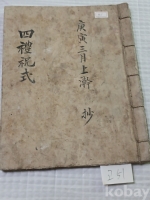 庚寅三月上澣 抄
四禮祝式
241
kobay